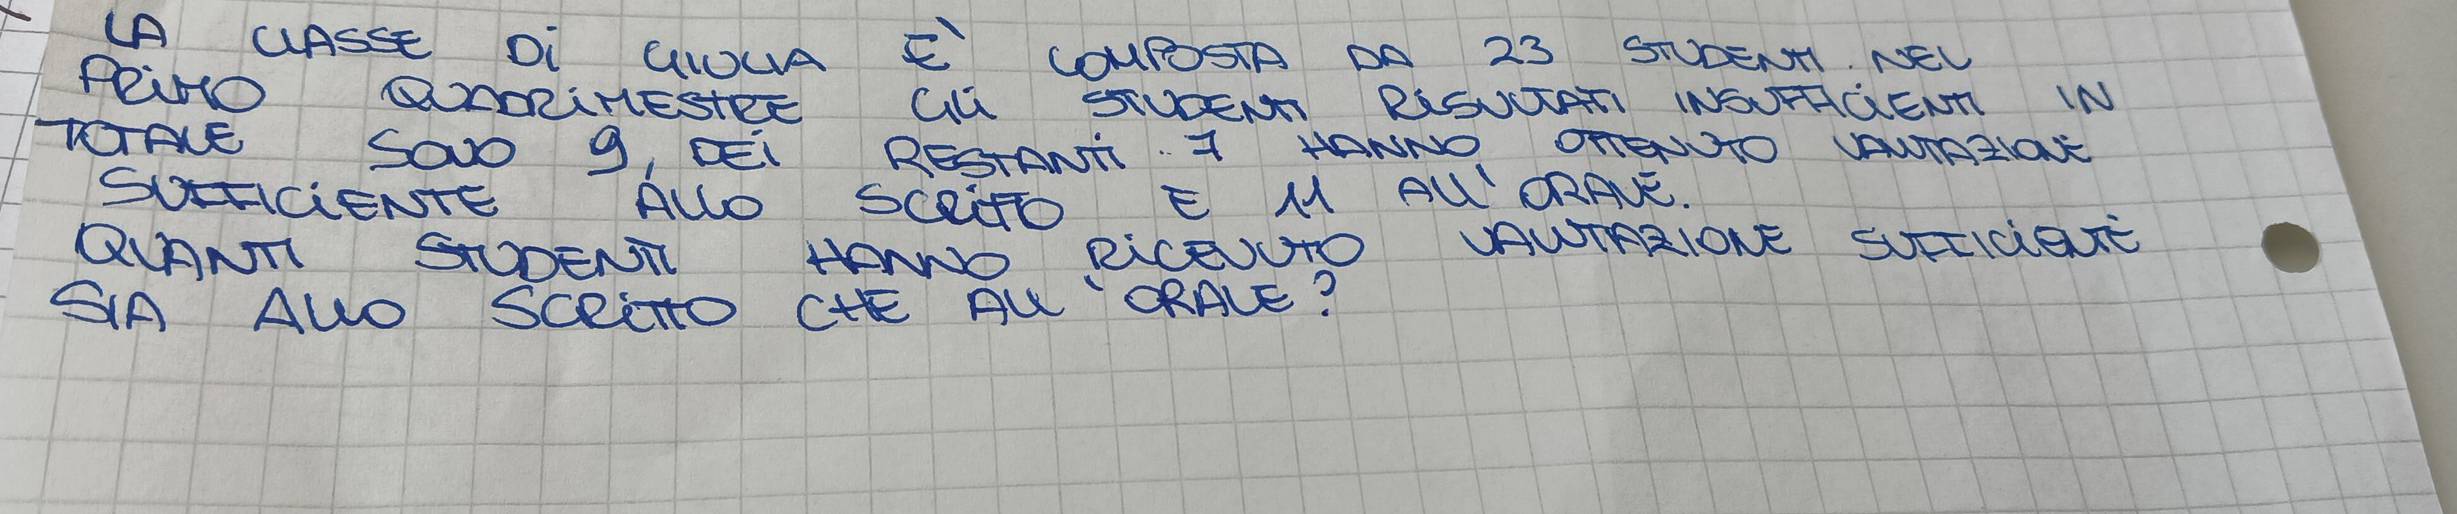 LA CLASSE Di GIULIA E' COMPOSTA DA 23 STUDENTI. NEL
PRiMO QUADRiMESTRE GLi STUDENTI RiSULTATI INSUFFICiENTI IN
TOTALE SONO 9, DEi RESTANTi 7 HANNO OTTENUTO VALUTAZIONE
SUFFICiENTE ALLO SCRiTTO E 11 ALL'ORALE.
QUANTI STUDENTI HANNO RiCEVUTO VALUTAZIONE SUFFICiENTE
SIA ALLO SCRiTTO CHE ALL'ORALE?